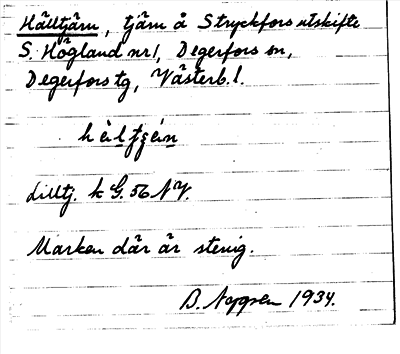 Hälltjärn, tjärn å Stryckfors utskifte
S. Högland nr 1, Degerfors sn,
Degerfors tg, Västerb. l.
Lilltj. k G. 56 NV.
Marken där är stenig.
B. Nygren 1934.